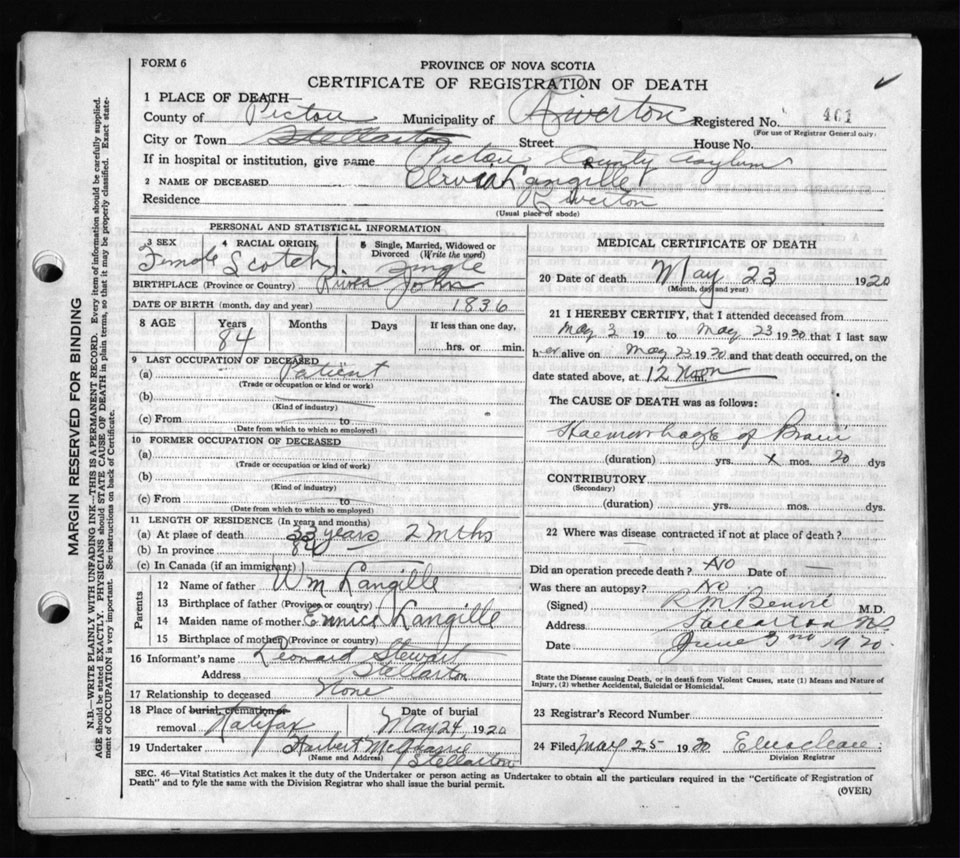 FORM 6
PROVINCE OF NOVA SCOTIA
CERTIFICATE OF REGISTRATION OF DEATH
1 PLACE OF DEATH—
County of Pictou Municipality of Riverton Registered No. 461
(For use of Registrar General only)
City or Town Stellarton Street House No.
If in hospital or institution, give name Pictou County Asylum
2 NAME OF DECEASED Langille
Residence Riverton
(Usual place of abode)
PERSONAL AND STATISTICAL INFORMATION
3 SEX 4 RACIAL ORIGIN 5 Single, Married, Widowed or Divorced (Write the word)
Female Scotch Single
BIRTHPLACE (Province or Country) River John
DATE OF BIRTH (month, day and year) 1836
8 AGE Years Months Days If less than one day,
84 hrs. or min.
9 LAST OCCUPATION OF DECEASED
(a) Patient
(Trade or occupation or kind of work)
(b)
(Kind of industry)
(c) From to
(Date from which to which so employed)
10 FORMER OCCUPATION OF DECEASED
(a)
(Trade or occupation or kind of work)
(b)
(Kind of industry)
(c) From to
(Date from which to which so employed)
11 LENGTH OF RESIDENCE (In years and months)
(a) At place of death 33 years 2 mths
(b) In province
(c) In Canada (if an immigrant)
Parents
12 Name of father Wm Langille
13 Birthplace of father (Province or country)
14 Maiden name of mother Eunice Langille
15 Birthplace of mother (Province or country)
16 Informant's name Leonard Stewart
Address Stellarton
17 Relationship to deceased None
18 Place of burial, cremation or removal Halifax Date of burial May 24 1920
19 Undertaker Herbert
(Name and Address) Stellarton
MEDICAL CERTIFICATE OF DEATH
20 Date of death May 23 1920
(Month, day and year)
21 I HEREBY CERTIFY, that I attended deceased from
May 3 19 to May 23 1920 that I last saw
her alive on May 23 1920 and that death occurred, on the
date stated above, at 12 Noon m.
The CAUSE OF DEATH was as follows:
Haemorrhage of Brain
(duration) yrs. x mos. 20 dys
CONTRIBUTORY
(Secondary)
(duration) yrs. mos. dys.
22 Where was disease contracted if not at place of death?
Did an operation precede death? No Date of —
Was there an autopsy? No
(Signed) R M M.D.
Address Stellarton NS
Date June 3rd 1920.
State the Disease causing Death, or in death from Violent Causes, state (1) Means and Nature of Injury, (2) whether Accidental, Suicidal or Homicidal.
23 Registrar's Record Number
24 Filed May 25 1920
Division Registrar
SEC. 46—Vital Statistics Act makes it the duty of the Undertaker or person acting as Undertaker to obtain all the particulars required in the "Certificate of Registration of
Death" and to fyle the same with the Division Registrar who shall issue the burial permit.
(OVER)
MARGIN RESERVED FOR BINDING
N.B.—WRITE PLAINLY, WITH UNFADING INK—THIS IS A PERMANENT RECORD. Every item of information should be carefully supplied.
AGE should be stated EXACTLY. PHYSICIANS should STATE CAUSE OF DEATH in plain terms, so that it may be properly classified. Exact state-
ment of OCCUPATION is very important. See instructions on back of Certificate.